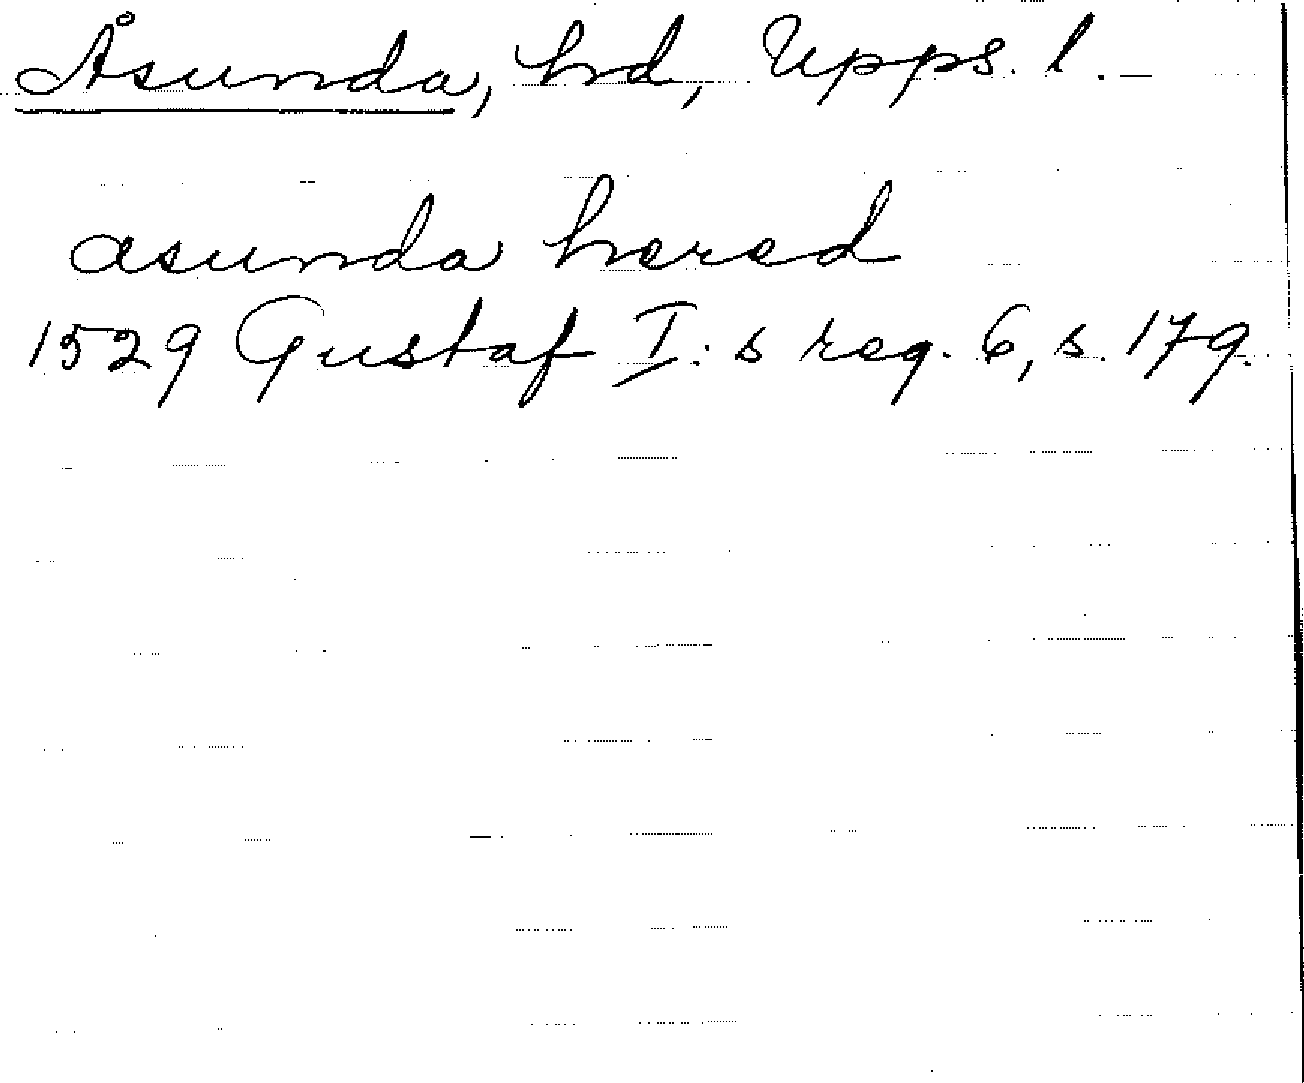 Åsunda, hd, Upps. l.
asunda hered
1529 Gustaf I:s reg. 6, s. 179.